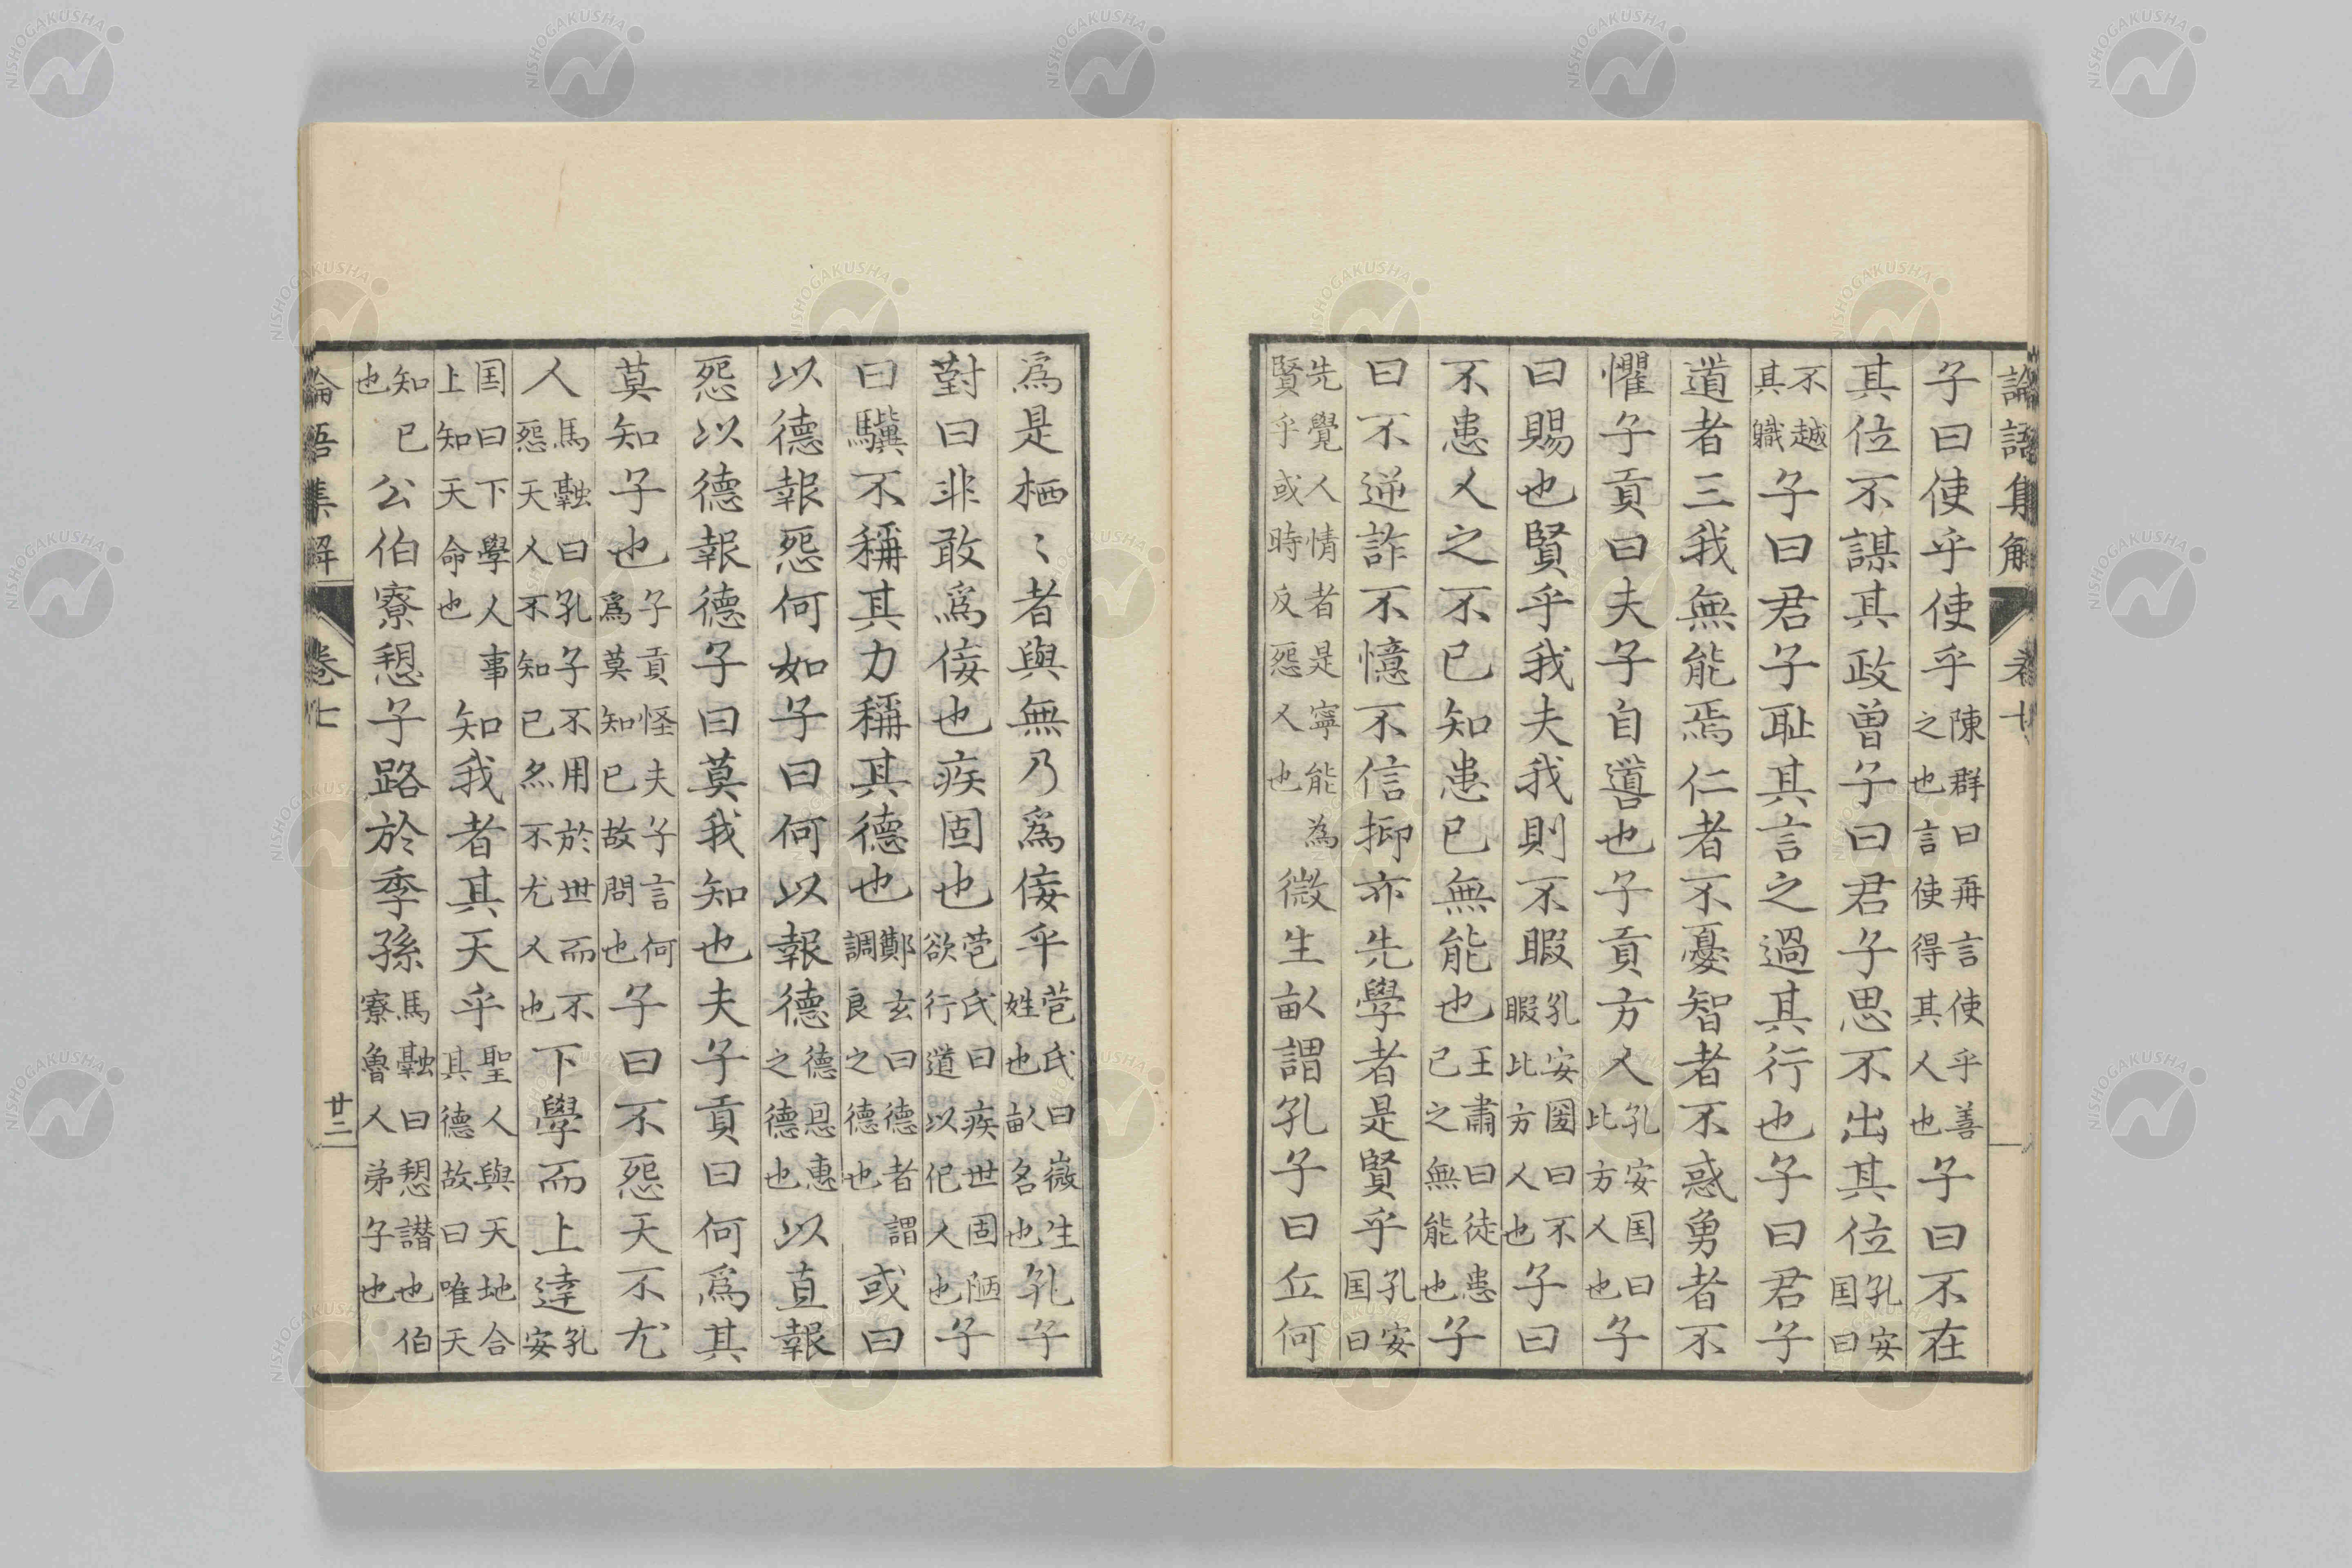 論語集解 卷七
子曰使乎使乎陳群曰再言使乎善之也言使得其人也子曰不在
其位不謀其政曽子曰君子思不出其位孔安囯曰
不越其職子曰君子耻其言之過其行也子曰君子
道者三我無能焉仁者不憂智者不惑勇者不
懼子貢曰夫子自噵也子貢方人孔安囯曰比方人也子
曰賜也賢乎我夫我則不暇孔安圀曰不暇比方人也子曰
不患人之不己知患己無能也王肅曰徒患己之無能也子
曰不逆詐不憶不信抑亦先學者是賢乎孔安囯曰
先覺人情者是寧能為賢乎或時反怨人也微生畝謂孔子曰丘何
爲是栖〻者與無乃爲佞乎苞氏曰薇生姓也畝名也孔子
對曰非敢爲佞也疾固也苞氏曰疾世固陋欲行道以化人也子
曰驥不稱其力稱其德也鄭玄曰德者謂調良之德也或曰
以德報怨何如子曰何以報德德恩惠之德也以直報
怨以德報德子曰莫我知也夫子貢曰何爲其
莫知子也子貢怪夫子言何爲莫知己故問也子曰不怨天不尤
人馬融曰孔子不用於世而不怨天人不知己亦不尤人也下學而上達孔安
囯曰下學人事上知天命也知我者其天乎聖人與天地合其德故曰唯天
知己也公伯寮愬子路於季孫馬融曰愬譖也伯寮魯人弟子也
論語集解 卷七 廿三